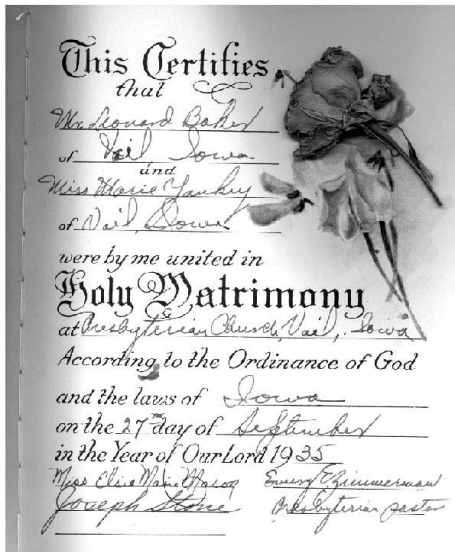 This Certifies
that
Mr. Leonard Baker
of Vail Iowa
and
Miss Marie Yankey
of Vail, Iowa
were by me united in
Holy Matrimony
at Presbyterian Church, Vail, Iowa
According to the Ordinance of God
and the laws of Iowa
on the 27th day of September
in the Year of Our Lord 1935
Miss Marie Emery E. Zimmerman
Joseph Stone Presbyterian pastor